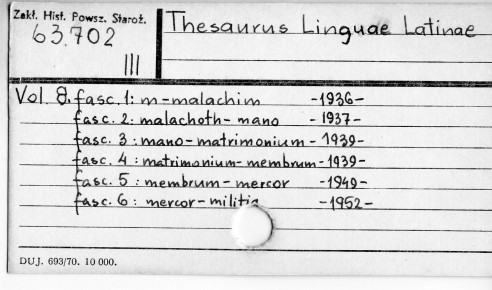 Zakł. Hist. Powsz. Staroż.
63.702
III
Thesaurus Linguae Latinae
Vol 8. fasc. 1: m-malachim -1936-
fasc. 2: malachoth-mano -1937-
fasc. 3: mano-matrimonium -1939-
fasc. 4: matrimonium-membrum -1939-
fasc. 5: membrum-mercor -1949-
fasc. 6: mercor-militia -1952-
DUJ. 693/70. 10 000.